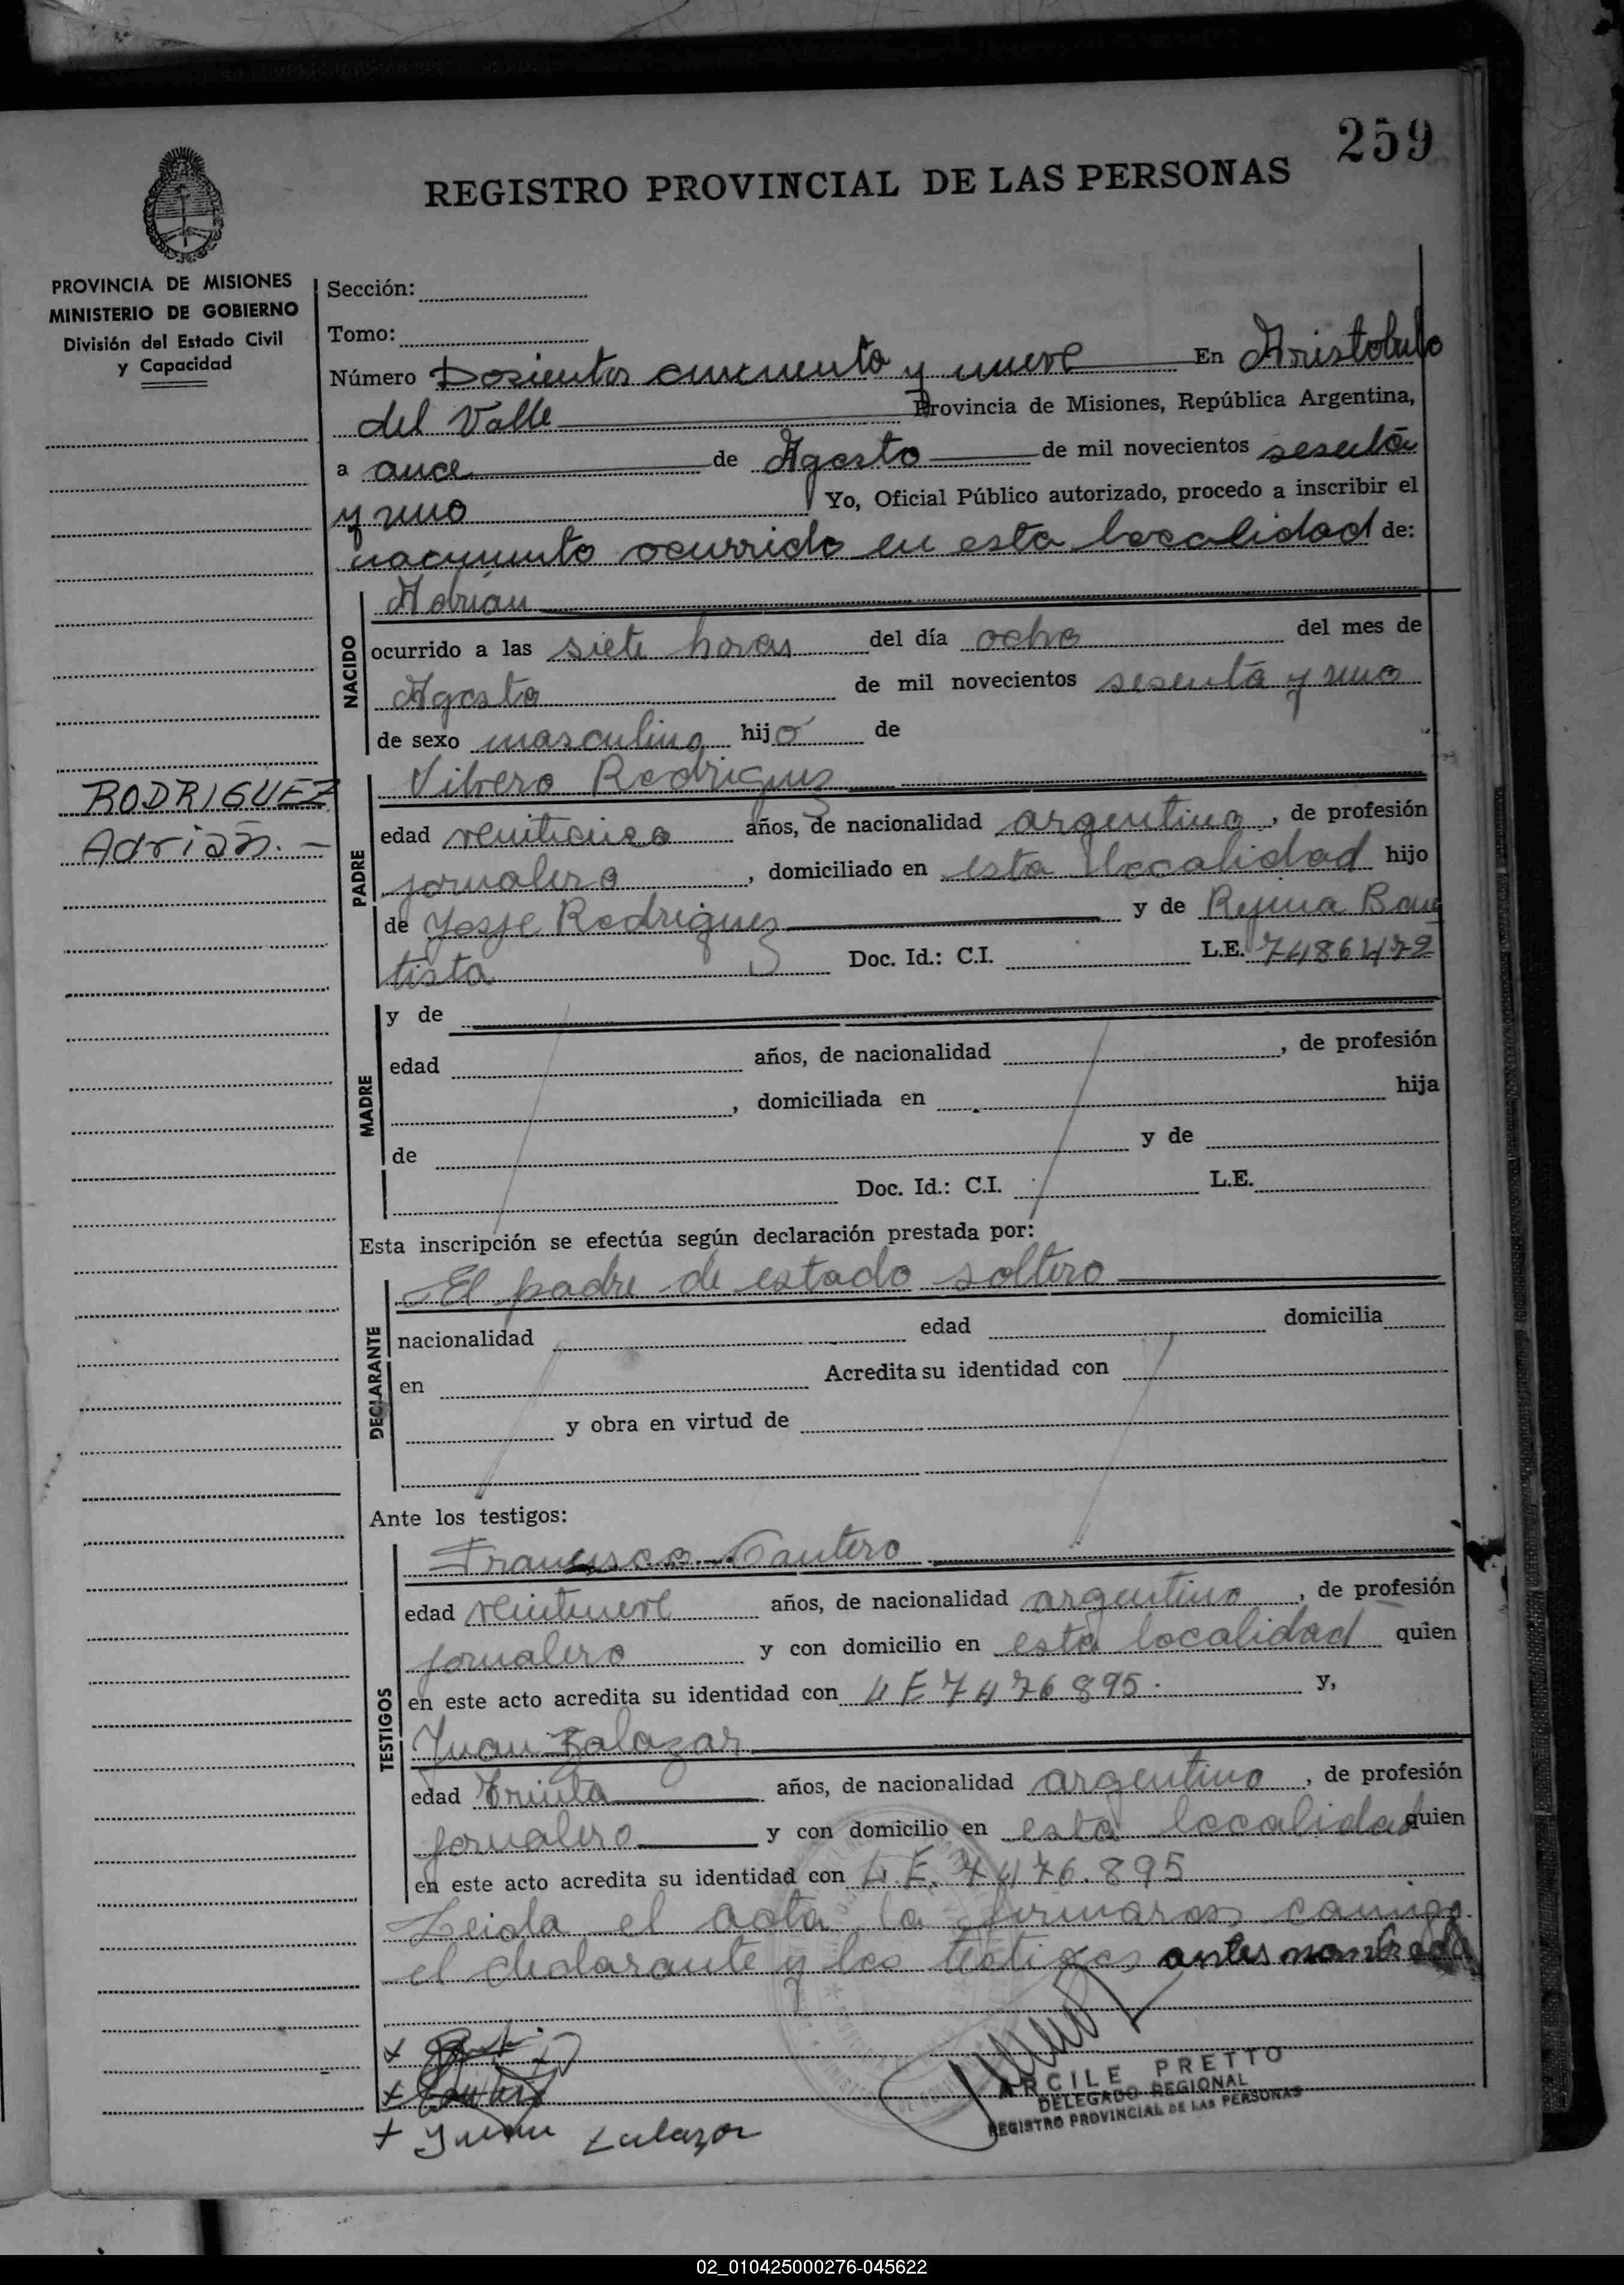 259
REGISTRO PROVINCIAL DE LAS PERSONAS
PROVINCIA DE MISIONES
MINISTERIO DE GOBIERNO
División del Estado Civil
y Capacidad
Sección:
Tomo:
Número Dosientos cincuenta y nueve En Aristobulo
del Valle Provincia de Misiones, República Argentina,
a once de Agosto de mil novecientos sesenta
y uno Yo, Oficial Público autorizado, procedo a inscribir el
nacimiento ocurrido en esta localidad de:
NACIDO
Adrian
ocurrido a las siete horas del día ocho del mes de
Agosto de mil novecientos sesenta y uno
de sexo masculino hijo de
RODRIGUEZ
Adrián. —
PADRE
Rodriguez
edad veinticinco años, de nacionalidad argentino, de profesión
jornalero, domiciliado en esta localidad hijo
de Rodriguez y de Rejina Bau
tista Doc. Id.: C.I. L.E. 7486472
MADRE
y de
edad años, de nacionalidad , de profesión
, domiciliada en hija
de y de
Doc. Id.: C.I. L.E.
Esta inscripción se efectúa según declaración prestada por:
DECLARANTE
El padre de estado soltero
nacionalidad edad domicilia
en Acredita su identidad con
y obra en virtud de
Ante los testigos:
TESTIGOS
Francisco Cantero
edad veintinueve años, de nacionalidad argentino, de profesión
jornalero y con domicilio en esta localidad quien
en este acto acredita su identidad con L E 7476895. y,
Juan Zalazar
edad Treinta años, de nacionalidad argentino, de profesión
jornalero y con domicilio en esta localidad quien
en este acto acredita su identidad con L.E. 7476.895
Leida el acta la firmaron conmigo
el declarante y los testigos antes nombrados
+
+
+ Juan Zalazar
ARCILE PRETTO
DELEGADO REGIONAL
REGISTRO PROVINCIAL DE LAS PERSONAS
02_010425000276-045622